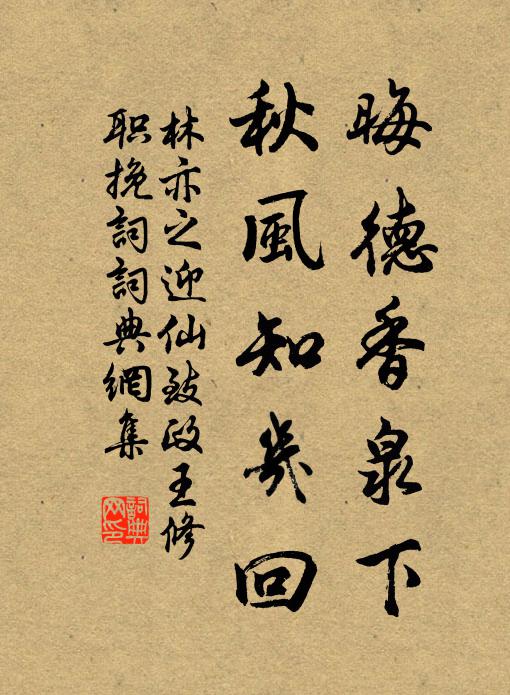 晦德香泉下
秋風知幾回
林亦之迎仙致政王修
职挽詞詞典網集
詞典
网印